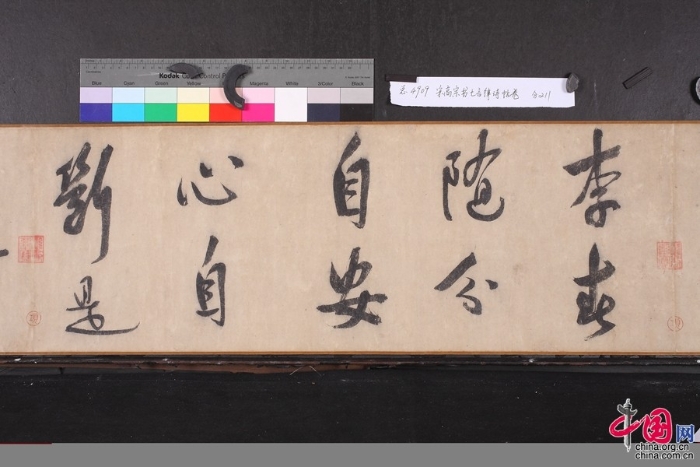 Kodak
Blue Cyan Green Yellow Magenta White 3/Color Black
4909 宋高宗书七言律诗帖卷
李春
随分
自安
心自
斷是
中国网
china.org.cn
china.com.cn